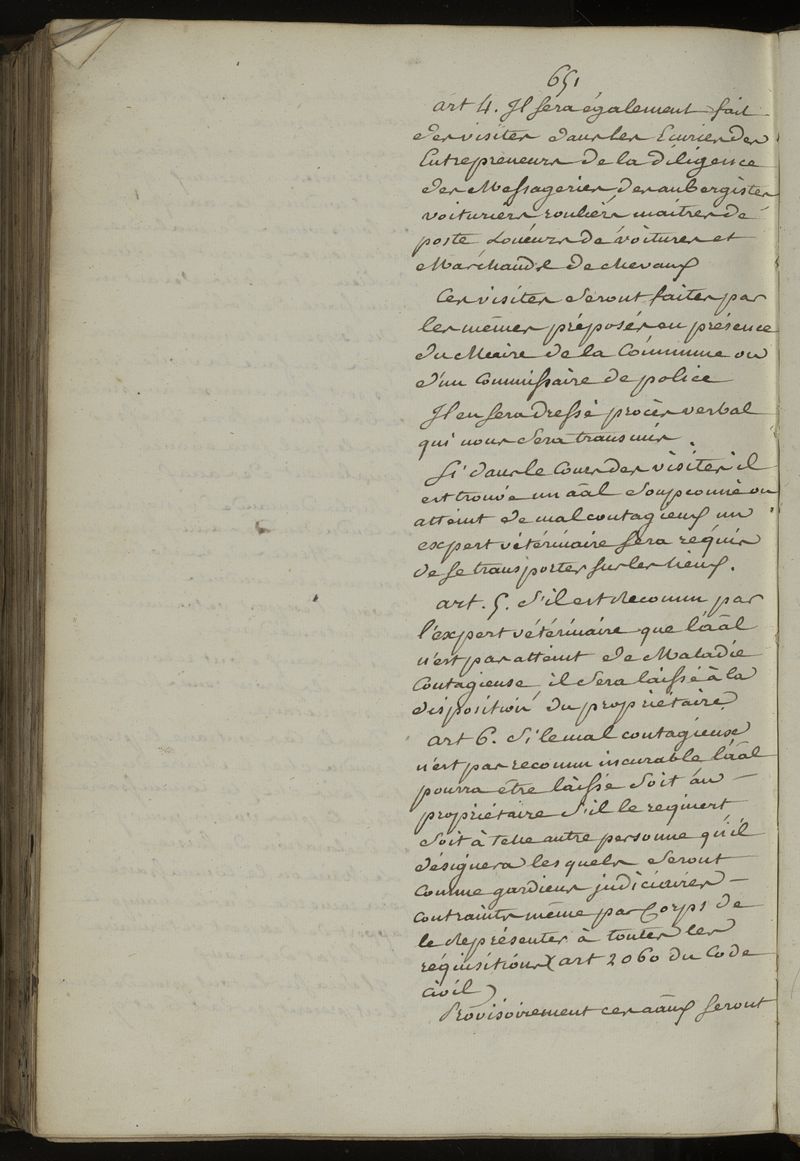 651
art 4. Il sera également fait
des visites dans les Ecuries des
Entrepreneurs de la diligence
des Messageries des aubergistes
voituriers rouliers maitres de
poste Loueurs de voitures et
Marchands de chevaux
Ces visites seront faites par
les mêmes préposés en présence
du Maire de la Commune ou
d'un Commissaire de police
Il en sera dressé procès verbal
qui nous sera transmis.
Si dans le Cours des visites il
est trouvé un āāl soupconné ou
atteint de mal contagieux un
expert vétérinaire sera requis
de se transporter sur les lieux.
art. 5. S'il est reconnu par
l'expert vétérinaire que l'āāl
n'est pas atteint de Maladie
Contagieuse, il sera laissé à la
disposition du propriétaire
art 6. Si le mal contagieux
n'est pas reconnu incurable l'āāl
pourra être laissé soit au
propriétaire s'il le requiert,
soit à telle autre personne qu'il
désignera lesquels seront
Comme gardiens judiciaires
contraints même par Corps de
le représenter à toutes les
réquisitions (art 2060 du Code
civil)
Provisoirement ces āāux seront